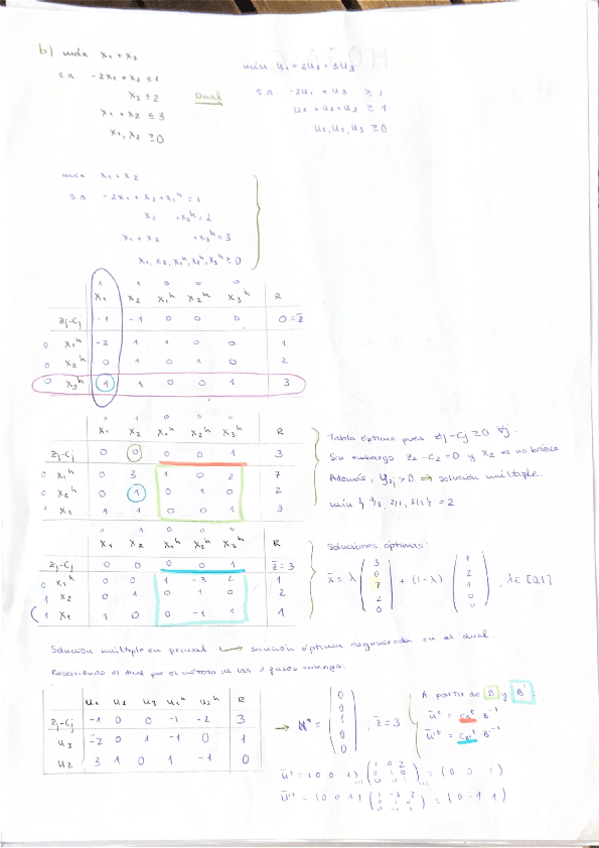 b) máx x₁ + x₂
s.a. -2x₁ + x₂ ≤ 1
x₂ ≤ 2
x₁ + x₂ ≤ 3
x₁, x₂ ≥ 0
Dual
min u₁ + 2u₂ + 3u₃
s.a. -2u₁ + u₃ ≥ 1
u₁ + u₂ + u₃ ≥ 1
u₁, u₂, u₃ ≥ 0
máx x₁ + x₂
s.a. -2x₁ + x₂ + x₁ʰ = 1
x₂ + x₂ʰ = 2
x₁ + x₂ + x₃ʰ = 3
x₁, x₂, x₁ʰ, x₂ʰ, x₃ʰ ≥ 0
1 1 0 0 0
x₁ x₂ x₁ʰ x₂ʰ x₃ʰ R
zj-cj -1 -1 0 0 0 0 = z̄
0 x₁ʰ -2 1 1 0 0 1
0 x₂ʰ 0 1 0 1 0 2
0 x₃ʰ 1 1 0 0 1 3
1 1 0 0 0
x₁ x₂ x₁ʰ x₂ʰ x₃ʰ R
zj-cj 0 0 0 0 1 3
0 x₁ʰ 0 3 1 0 2 7
0 x₂ʰ 0 1 0 1 0 2
1 x₁ 1 1 0 0 1 3
Tabla óptima pues zj-cj ≥ 0 ∀j.
Sin embargo z₂-c₂ = 0 y x₂ es no básica
Además, y₂j > 0 ⇒ solución múltiple.
min { 7/3, 2/1, 3/1 } = 2
1 1 0 0 0
x₁ x₂ x₁ʰ x₂ʰ x₃ʰ R
zj-cj 0 0 0 0 1 z̄ = 3
0 x₁ʰ 0 0 1 -3 2 1
1 x₂ 0 1 0 1 0 2
1 x₁ 1 0 0 -1 1 1
Soluciones óptimas:
x̄ = λ (3 0 7 2 0) + (1-λ) (1 2 1 0 0), λ ∈ [0,1]
Solución múltiple en primal → solución óptima degenerada en el dual.
Resolviendo el dual por el método de las 2 fases obtengo:
u₁ u₂ u₃ u₁ʰ u₂ʰ R
zj-cj -1 0 0 -1 -2 3
u₃ -2 0 1 -1 0 1
u₂ 3 1 0 1 -1 0
→ u* = (0 0 1 0 0), z̄ = 3
A partir de B y B':
ūᵗ = c_Bᵗ B⁻¹
ū'ᵗ = c_B'ᵗ B'⁻¹
ūᵗ = (0 0 1) (1 0 2 0 1 0 0 0 1) = (0 0 1)
ū'ᵗ = (0 0 1) (1 -3 2 0 1 0 0 -1 1) = (0 -1 1)